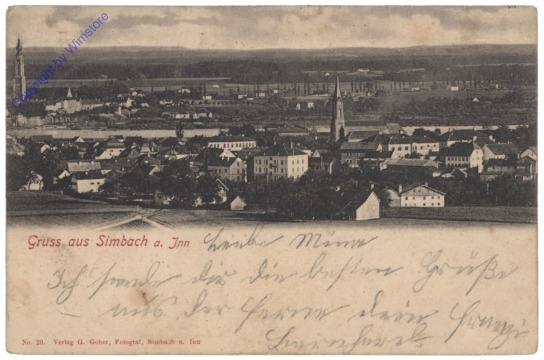 Copyright by Wimstore
Gruss aus Simbach a. Inn
Liebe Mina
Ich sende dir die besten Grüße
aus der Ferne dein
No. 20. Verlag G. Gober, Fotograf, Simbach a. Inn